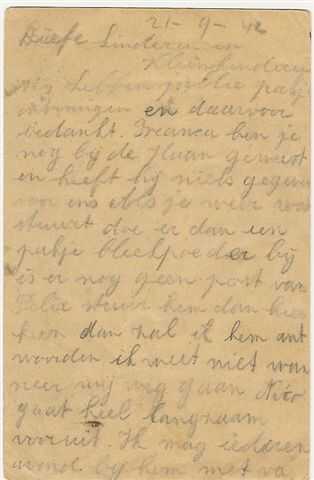 21-9-42
Liefe kinderen en
Kleinkinderen
Wij hebben jullie pakj
ontvangen en daarvoor
bedankt. Bianca ben je
nog bij de Haan geweest
en heeft hij niets gegeven
voor ons als je weer wat
stuurt doe er dan een
pakje bleekpoeder bij
is er nog geen post van
Felix stuur hem dan hier
heen dan zal ik hem ant
woorden ik weet niet wan
neer wij weg gaan Nico
gaat heel langzaam
vooruit. Ik mag iederen
avond bij hem met va